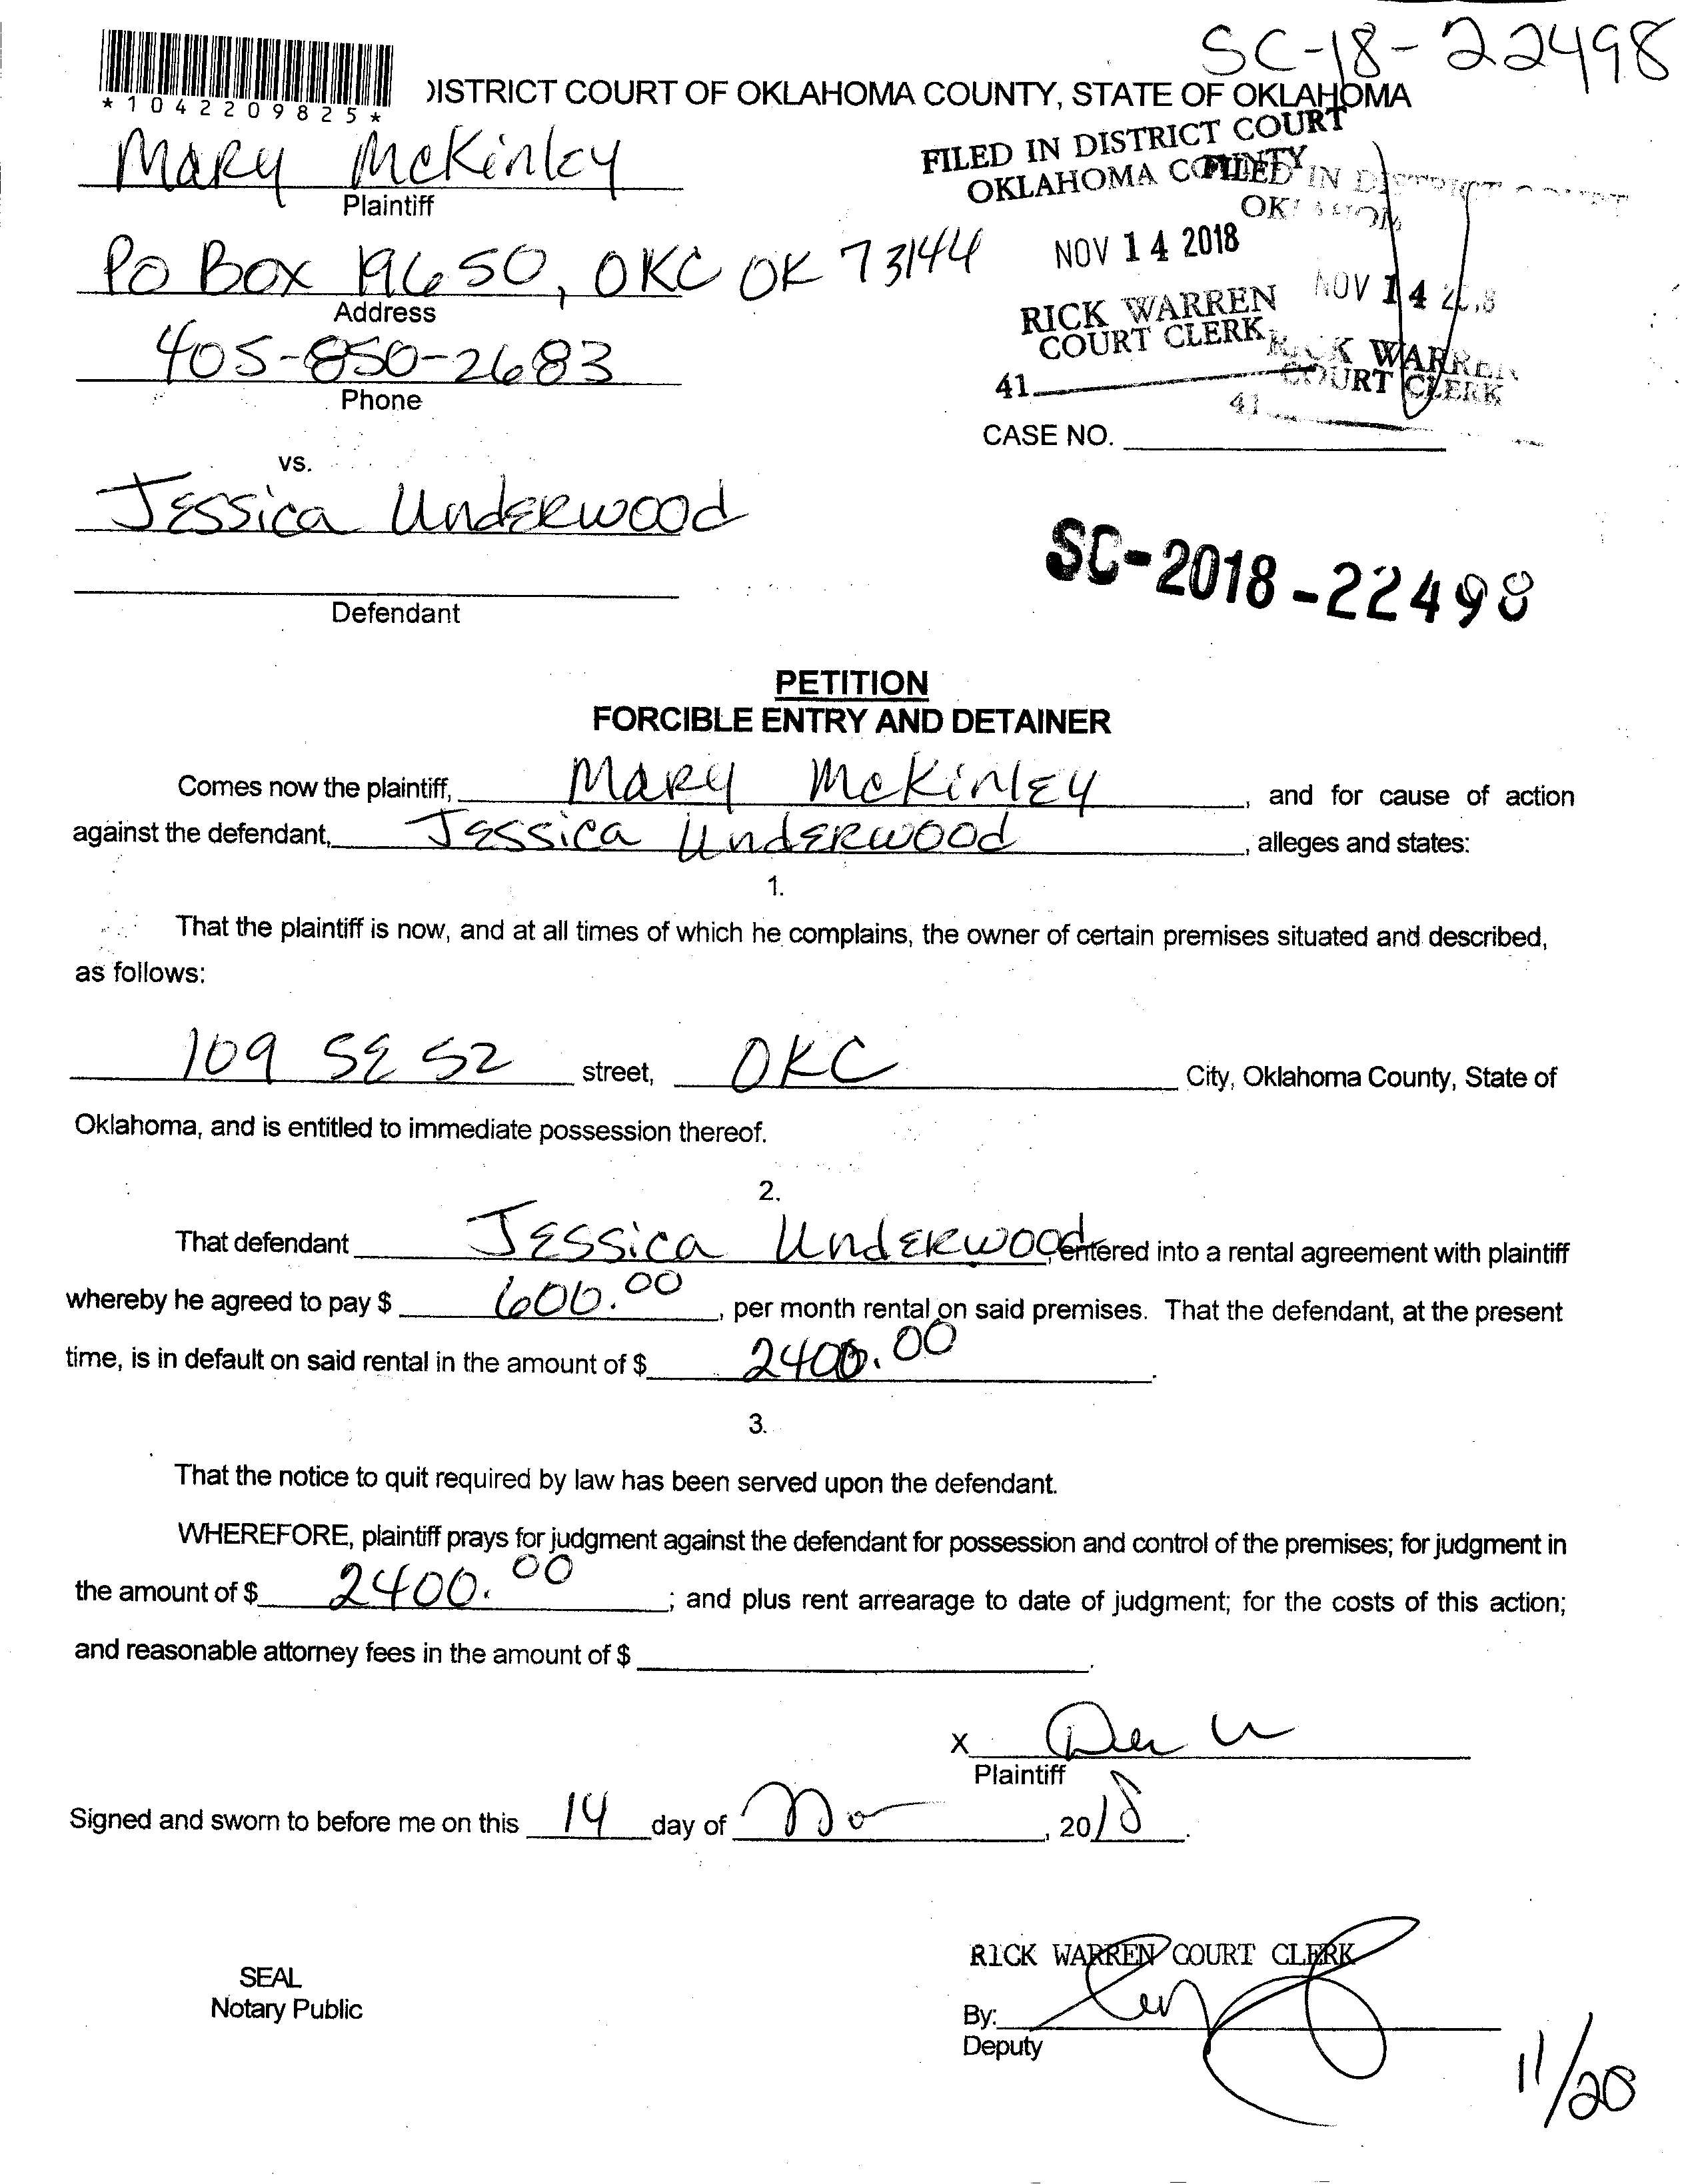 SC-18-22498
*1042209825*
DISTRICT COURT OF OKLAHOMA COUNTY, STATE OF OKLAHOMA
MARY McKinley
Plaintiff
FILED IN DISTRICT COURT
OKLAHOMA COUNTY
FILED IN DISTRICT COURT
PO BOX 19650, OKC OK 73144
Address
NOV 14 2018
NOV 14 2018
405-850-2683
Phone
RICK WARREN
COURT CLERK
RICK WARREN
COURT CLERK
41
41
CASE NO.
vs.
Jessica Underwood
Defendant
SC-2018-22498
PETITION
FORCIBLE ENTRY AND DETAINER
Comes now the plaintiff, Mary McKinley, and for cause of action
against the defendant, Jessica Underwood, alleges and states:
1.
That the plaintiff is now, and at all times of which he complains, the owner of certain premises situated and described,
as follows:
109 SE 52 street, OKC City, Oklahoma County, State of
Oklahoma, and is entitled to immediate possession thereof.
2.
That defendant Jessica Underwood, entered into a rental agreement with plaintiff
whereby he agreed to pay $ 600.00, per month rental on said premises. That the defendant, at the present
time, is in default on said rental in the amount of $ 2400.00.
3.
That the notice to quit required by law has been served upon the defendant.
WHEREFORE, plaintiff prays for judgment against the defendant for possession and control of the premises; for judgment in
the amount of $ 2400.00; and plus rent arrearage to date of judgment; for the costs of this action;
and reasonable attorney fees in the amount of $ .
X
Plaintiff
Signed and sworn to before me on this 14 day of Nov, 2018.
SEAL
Notary Public
RICK WARREN COURT CLERK
By:
Deputy
11/28